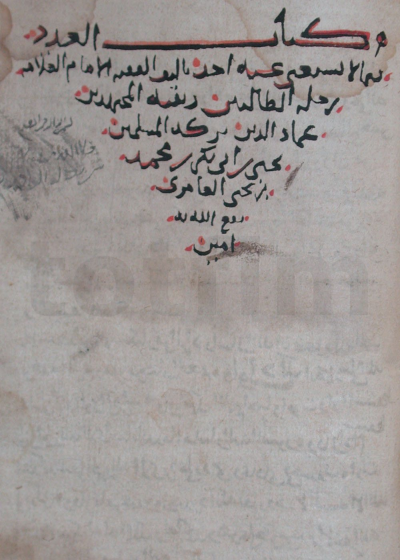 كتاب العدد
فيما لا يستغني عنه احد تاليف الفقيه الامام العلامه
رحلة الطالبين وبقية المجتهدين
عماد الدين بركة المسلمين
يحيى بن ابي بكر بن محمد
بن يحيى العامري
نفع الله به
امين